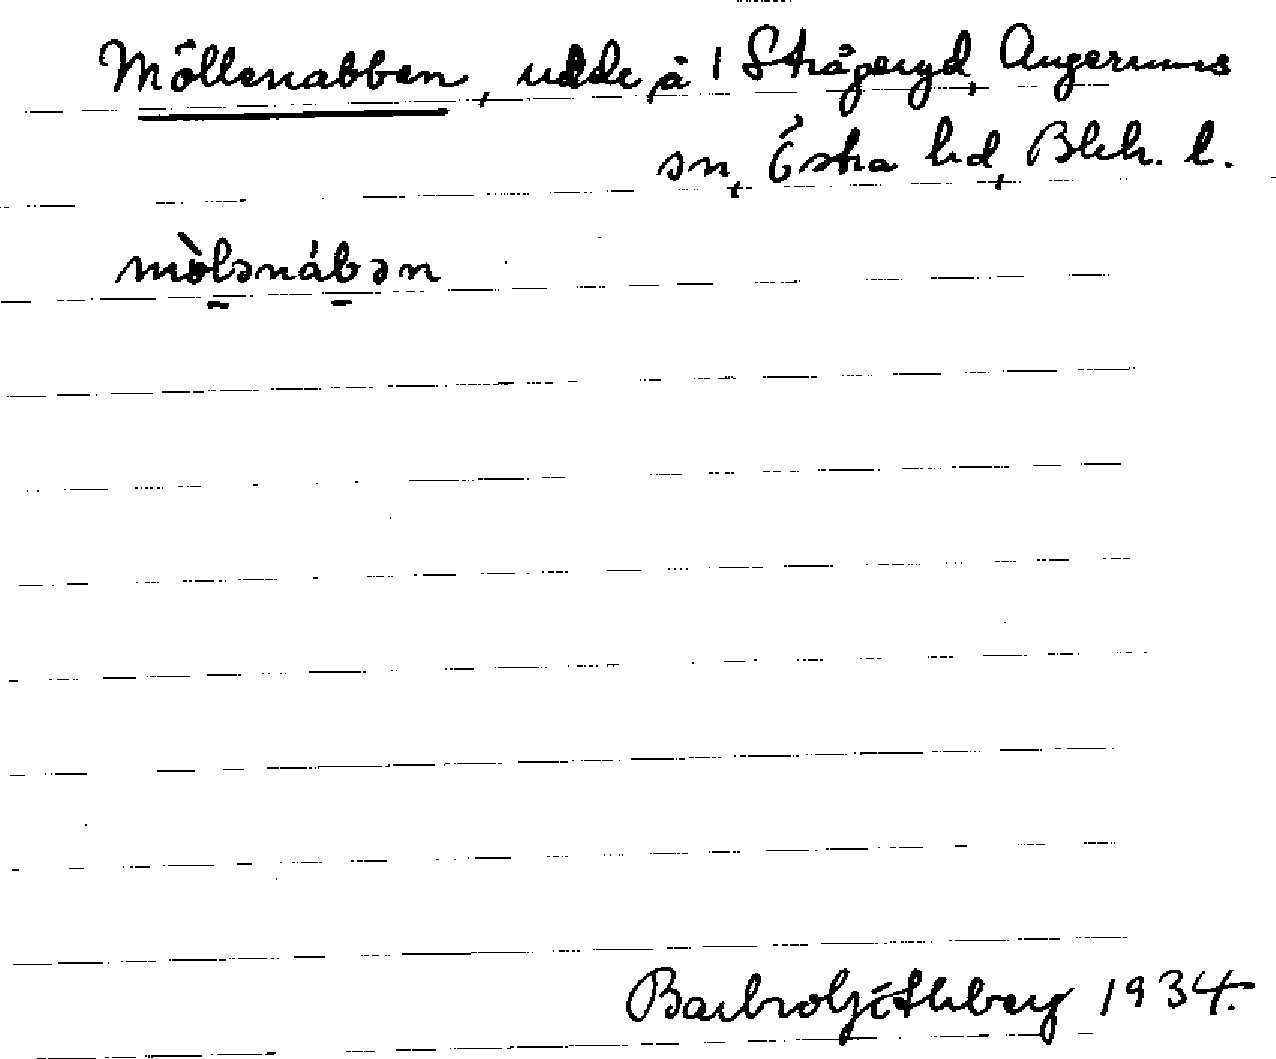 Möllenabben, udde på 1 Strågeryd, Augerums
sn, Östra hd, Blek. l.
mòlənábən
Barbro Götlberg 1934.